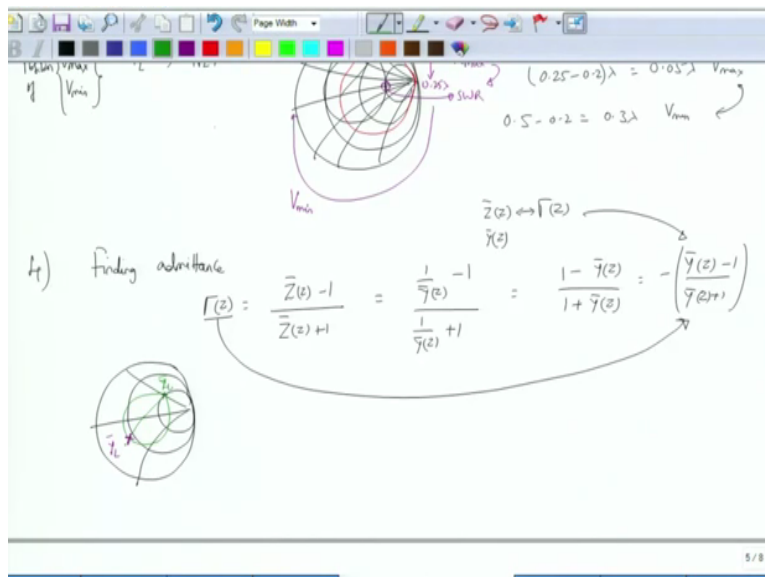 Page Width
Vmax
Vmin
0.25λ
SWR
(0.25-0.2)λ = 0.05λ Vmax
0.5-0.2 = 0.3λ Vmin
Vmin
Z̄(z) ↔ Γ(z)
ȳ(z)
4) Finding admittance
Γ(z) = (Z̄(z) -1)/(Z̄(z) +1) = (1/ȳ(z) -1)/(1/ȳ(z) +1) = (1- ȳ(z))/(1+ ȳ(z)) = -(ȳ(z) -1 / ȳ(z)+1)
ȳL
5/8